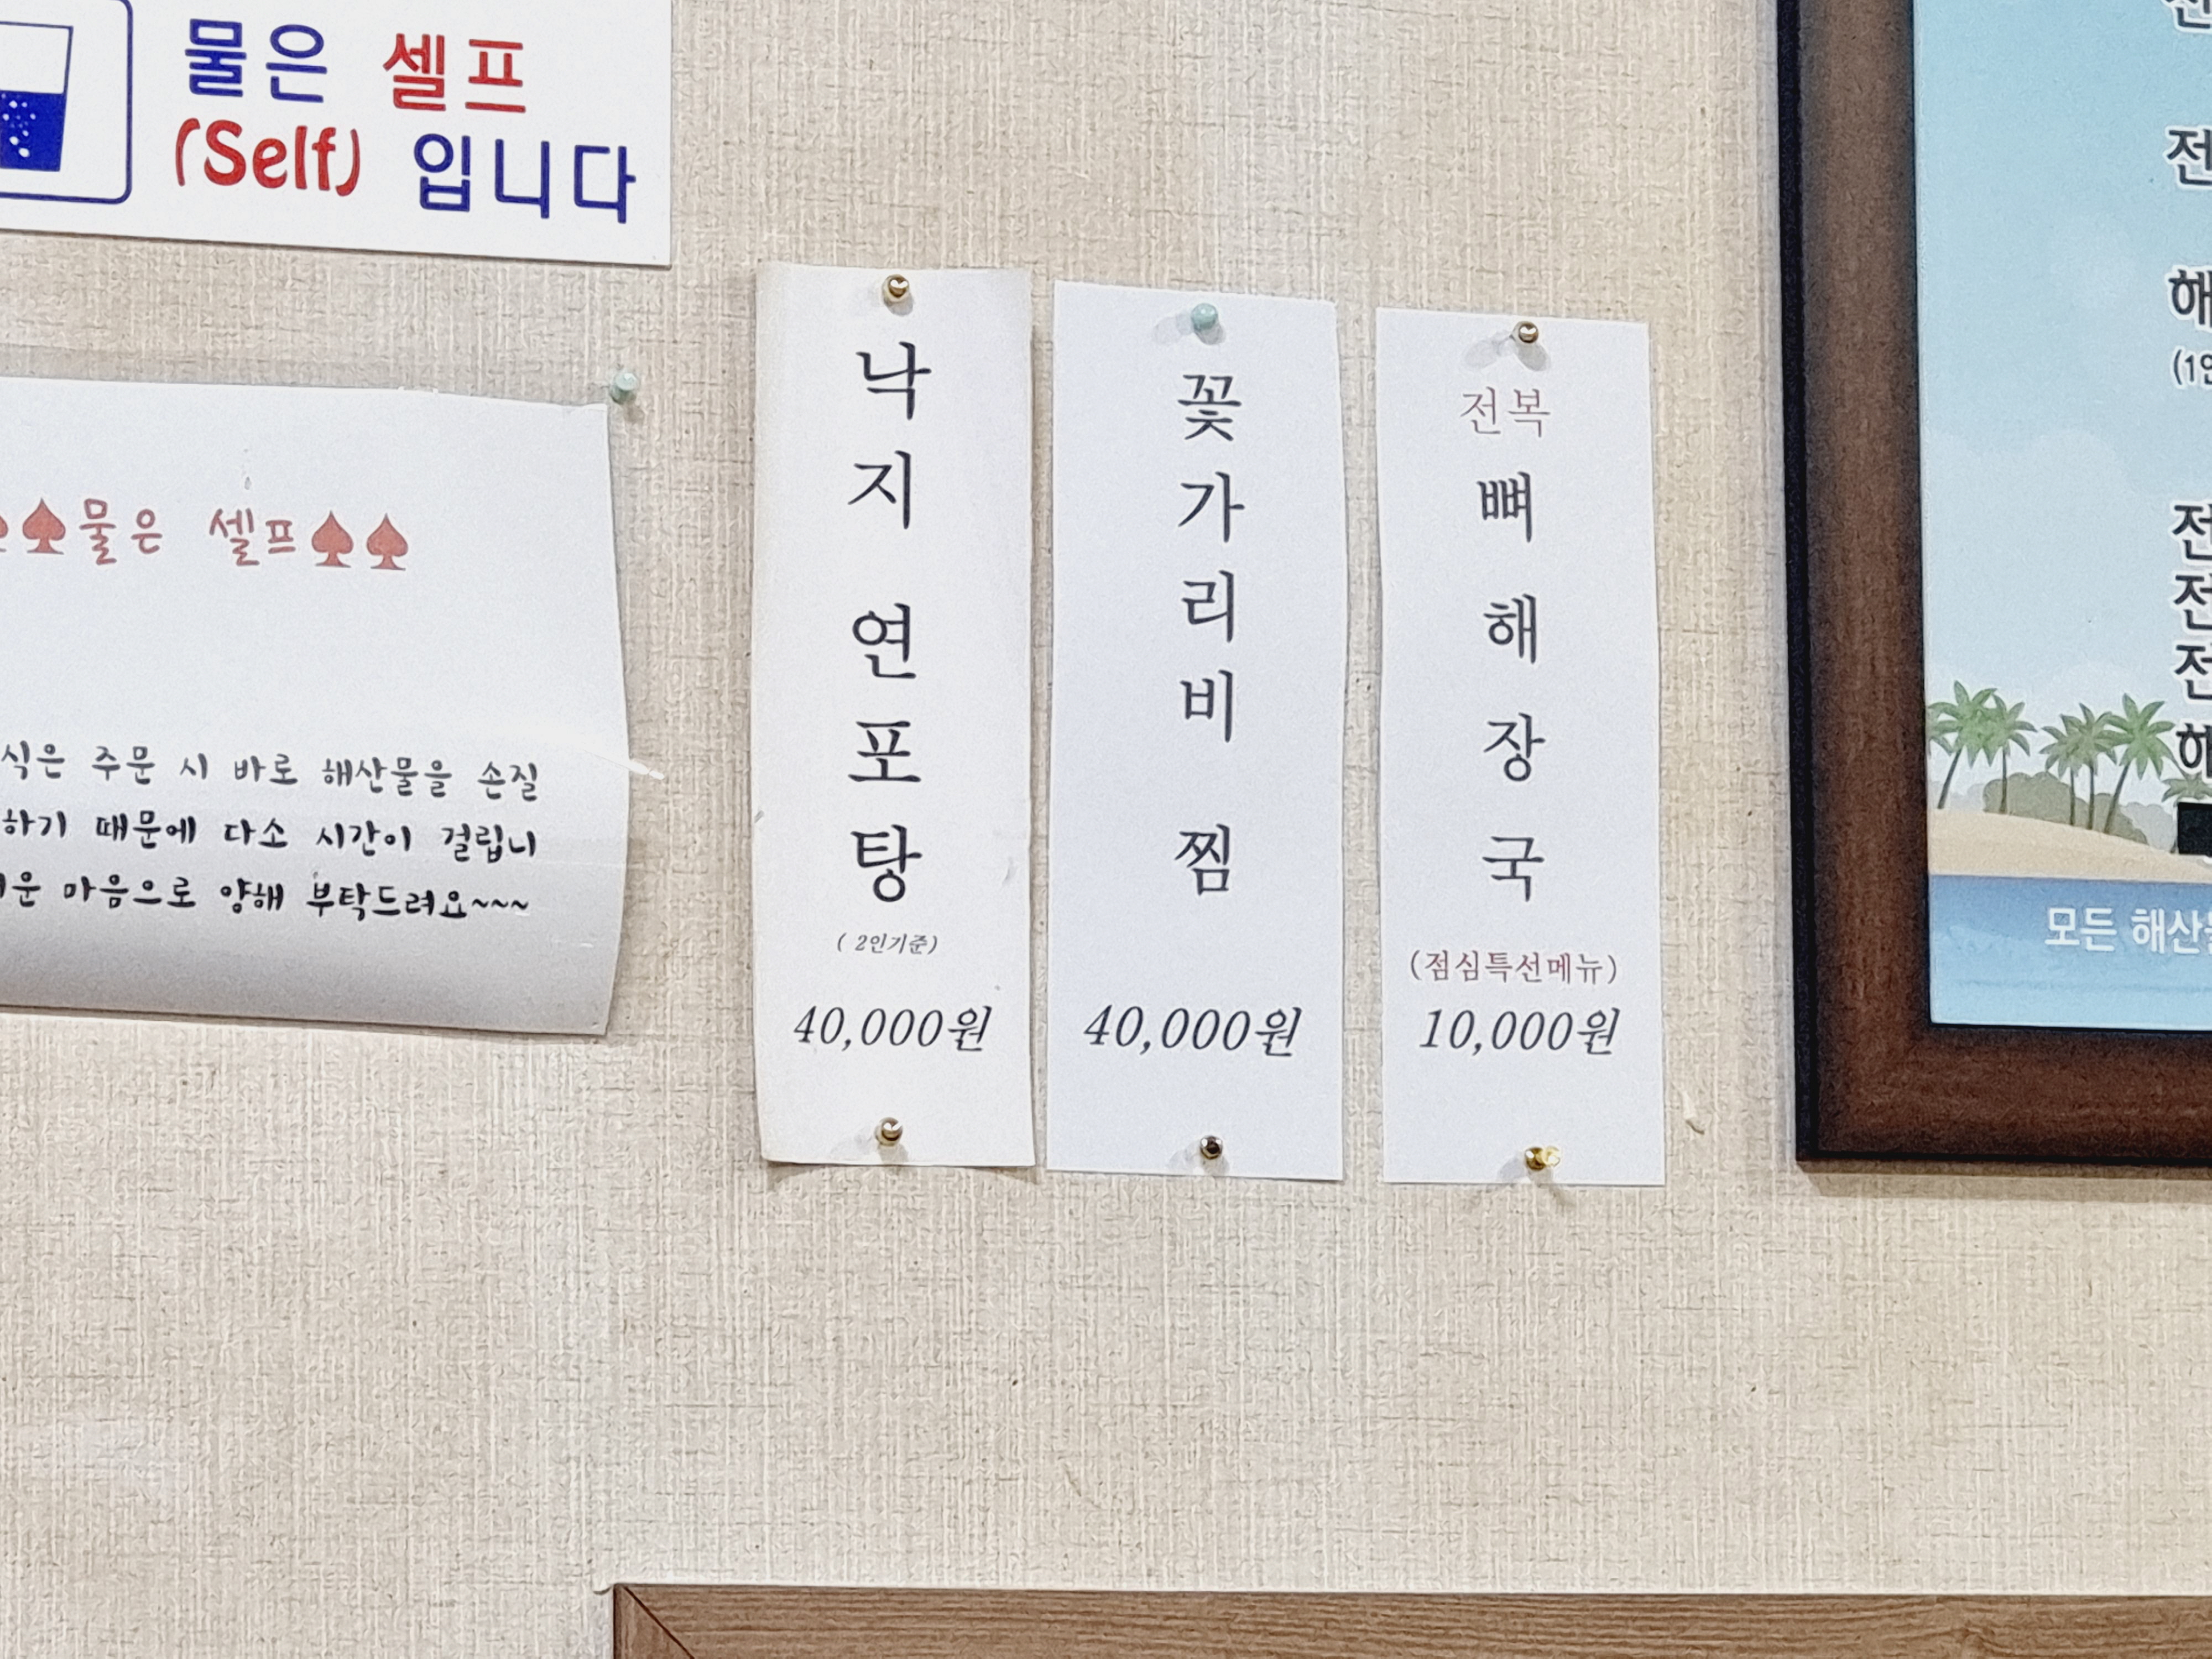 물은 셀프
(Self) 입니다
♠물은 셀프♠♠
식은 주문 시 바로 해산물을 손질
하기 때문에 다소 시간이 걸립니
마음으로 양해 부탁드려요~~~
낙지 연포탕
( 2인기준)
40,000원
꽃가리비 찜
40,000원
전복
뼈해장국
(점심특선메뉴)
10,000원
모든